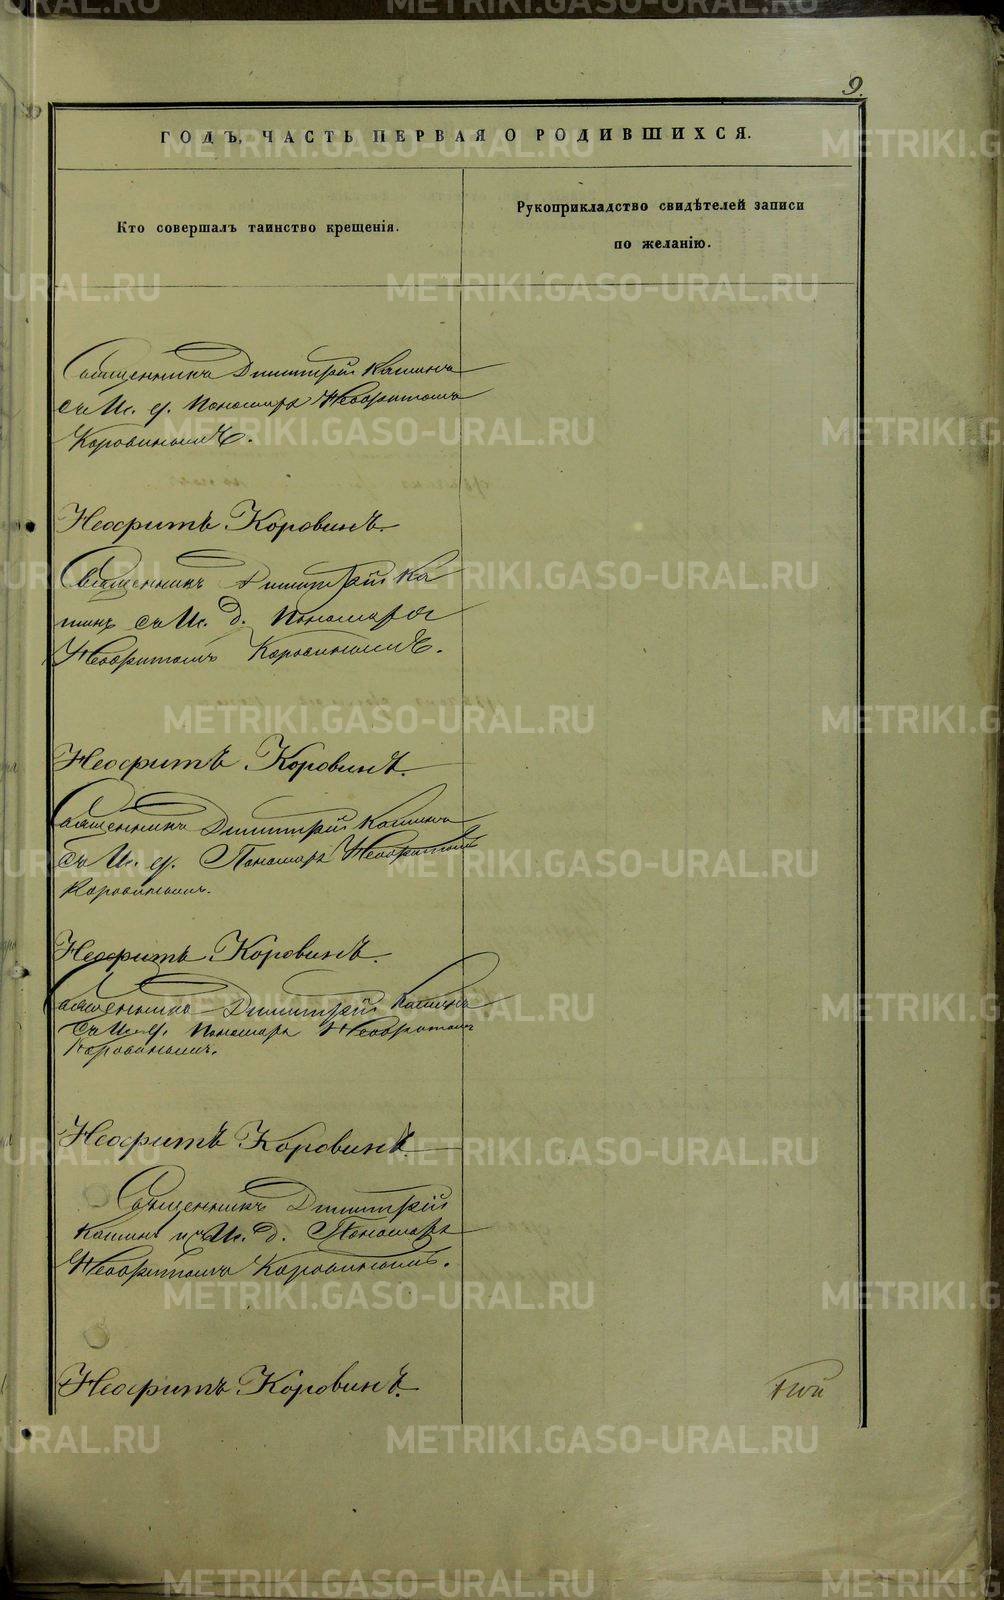 9.
ГОДЪ, ЧАСТЬ ПЕРВАЯ О РОДИВШИХСЯ.
Кто совершалъ таинство крещенія.
Рукоприкладство свидѣтелей записи
по желанію.
Священникъ Димитрій Катинъ
съ И. д. Пономаря Неофитомъ
Коровинымъ.
Неофитъ Коровинъ.
Священникъ Димитрій Ка
тинъ съ И. д. Пономаря
Неофитомъ Коровинымъ.
Неофитъ Коровинъ.
Священникъ Димитрій Катинъ
съ И. д. Пономаря Неофитомъ
Коровинымъ.
Неофитъ Коровинъ.
Священникъ Димитрій Катинъ
съ И. д. Пономаря Неофитомъ
Коровинымъ.
Неофитъ Коровинъ.
Священникъ Димитрій
Катинъ съ И. д. Пономаря
Неофитомъ Коровинымъ.
Неофитъ Коровинъ.
METRIKI.GASO-URAL.RU